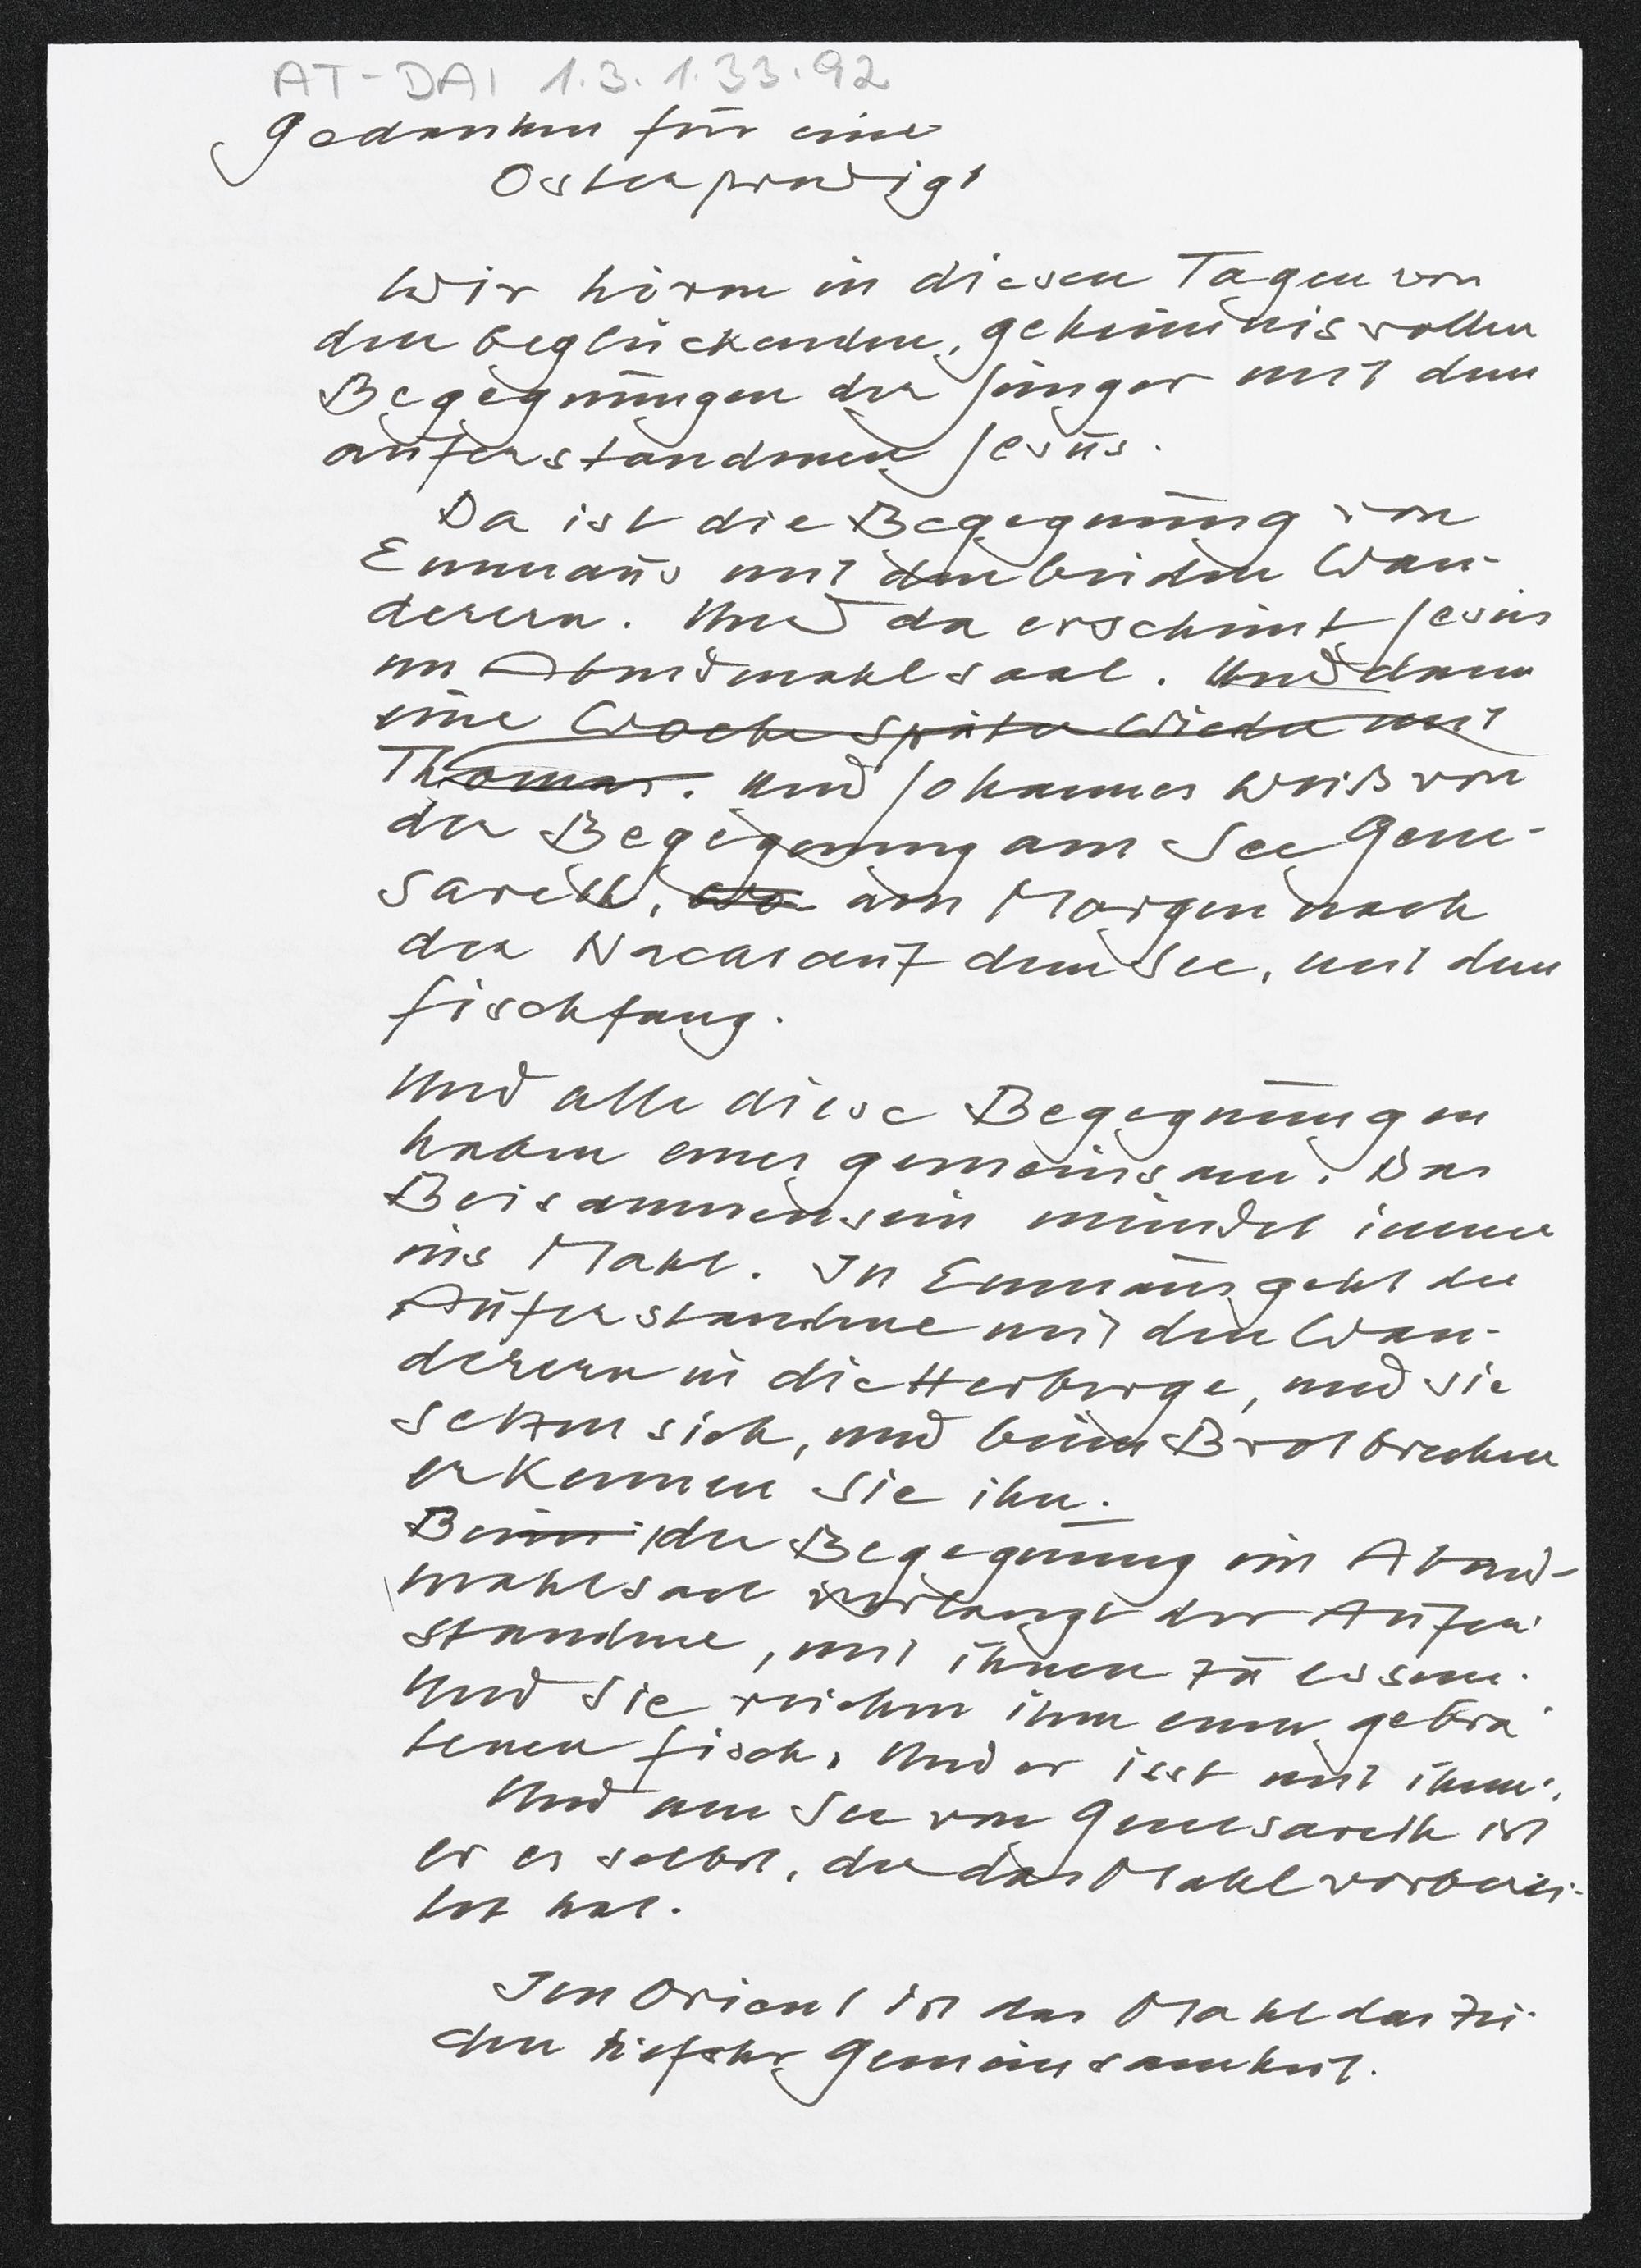 AT-DAI 1.3.1.33.92
Gedanken für eine
Osterpredigt
Wir hören in diesen Tagen von
den beglückenden, geheimnisvollen
Begegnungen der Jünger mit dem
auferstandenen Jesus.
Da ist die Begegnung von
Emmaus mit den beiden Wan-
derern. Und da erscheint Jesus
im Abendmahlsaal. Und dann
eine Woche später wieder mit
Thomas. Und Johannes weiß von
der Begegnung am See Gene-
sareth, wo am Morgen nach
der Nacht auf dem See, mit dem
Fischfang.
Und alle diese Begegnungen
haben eines gemeinsam. Das
Beisammensein mündet immer
ins Mahl. In Emmaus geht der
Auferstandene mit den Wan-
derern in die Herberge, und sie
setzen sich, und beim Brotbrechen
erkennen sie ihn.
Beim der Begegnung im Abend-
mahlsaal verlangt der Aufer-
standene, mit ihnen zu essen.
Und sie reichen ihm einen gebra-
tenen Fisch. Und er isst mit ihnen.
Und am See von Genesareth ist
er es selbst, der das Mahl vorberei-
tet hat.
Im Orient ist das Mahl das Zei-
chen tiefster Gemeinsamkeit.